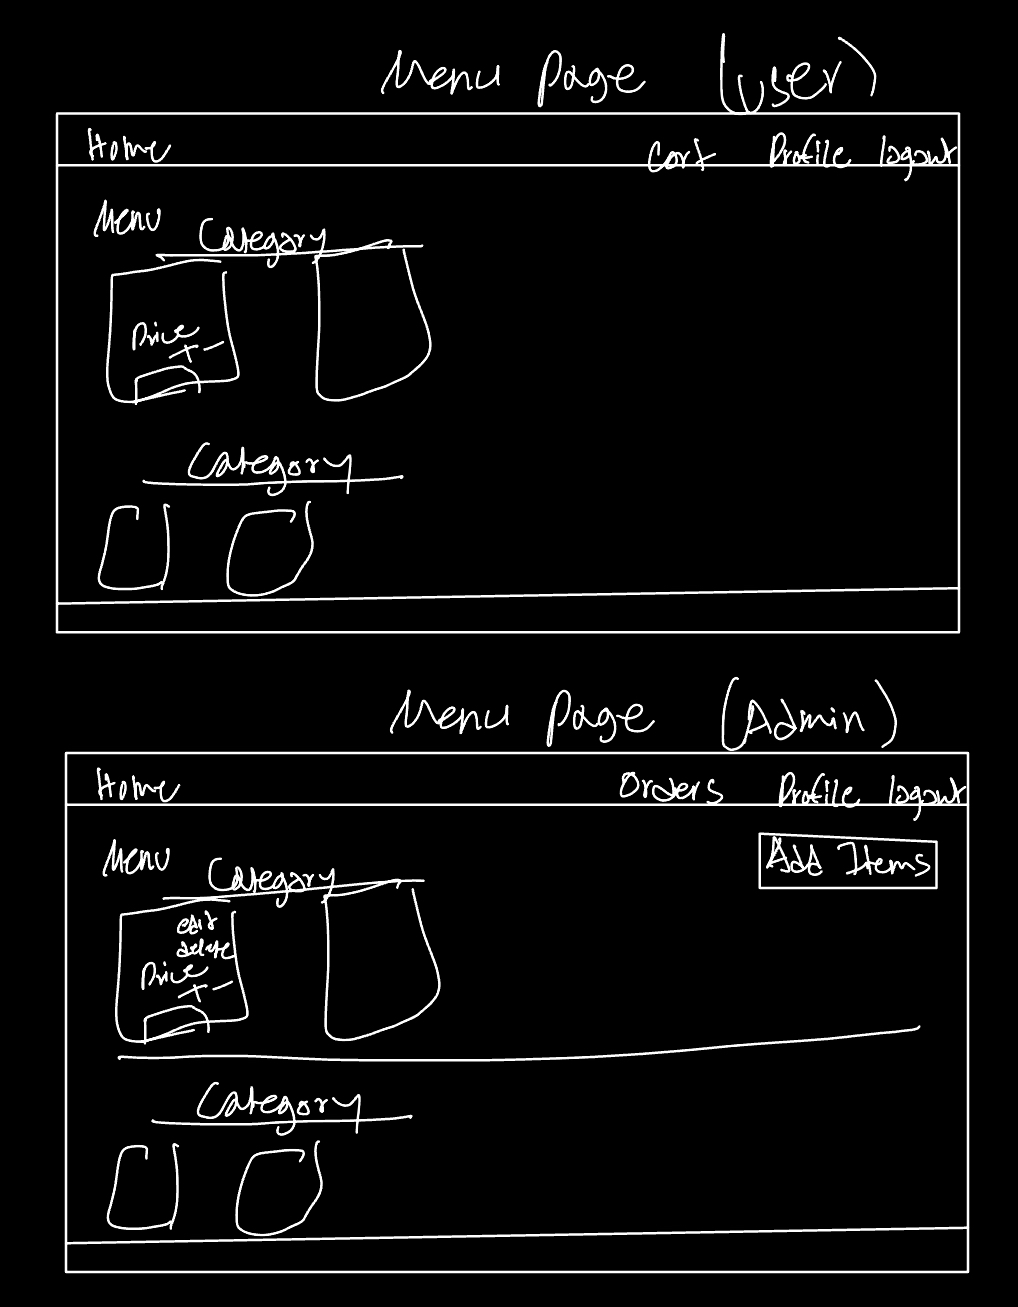 Menu Page (User)
Home Cart Profile logout
Menu
Category
Price
+ -
Category
Menu Page (Admin)
Home Orders Profile logout
Menu
Add Items
Category
edit
delete
Price
+ -
Category